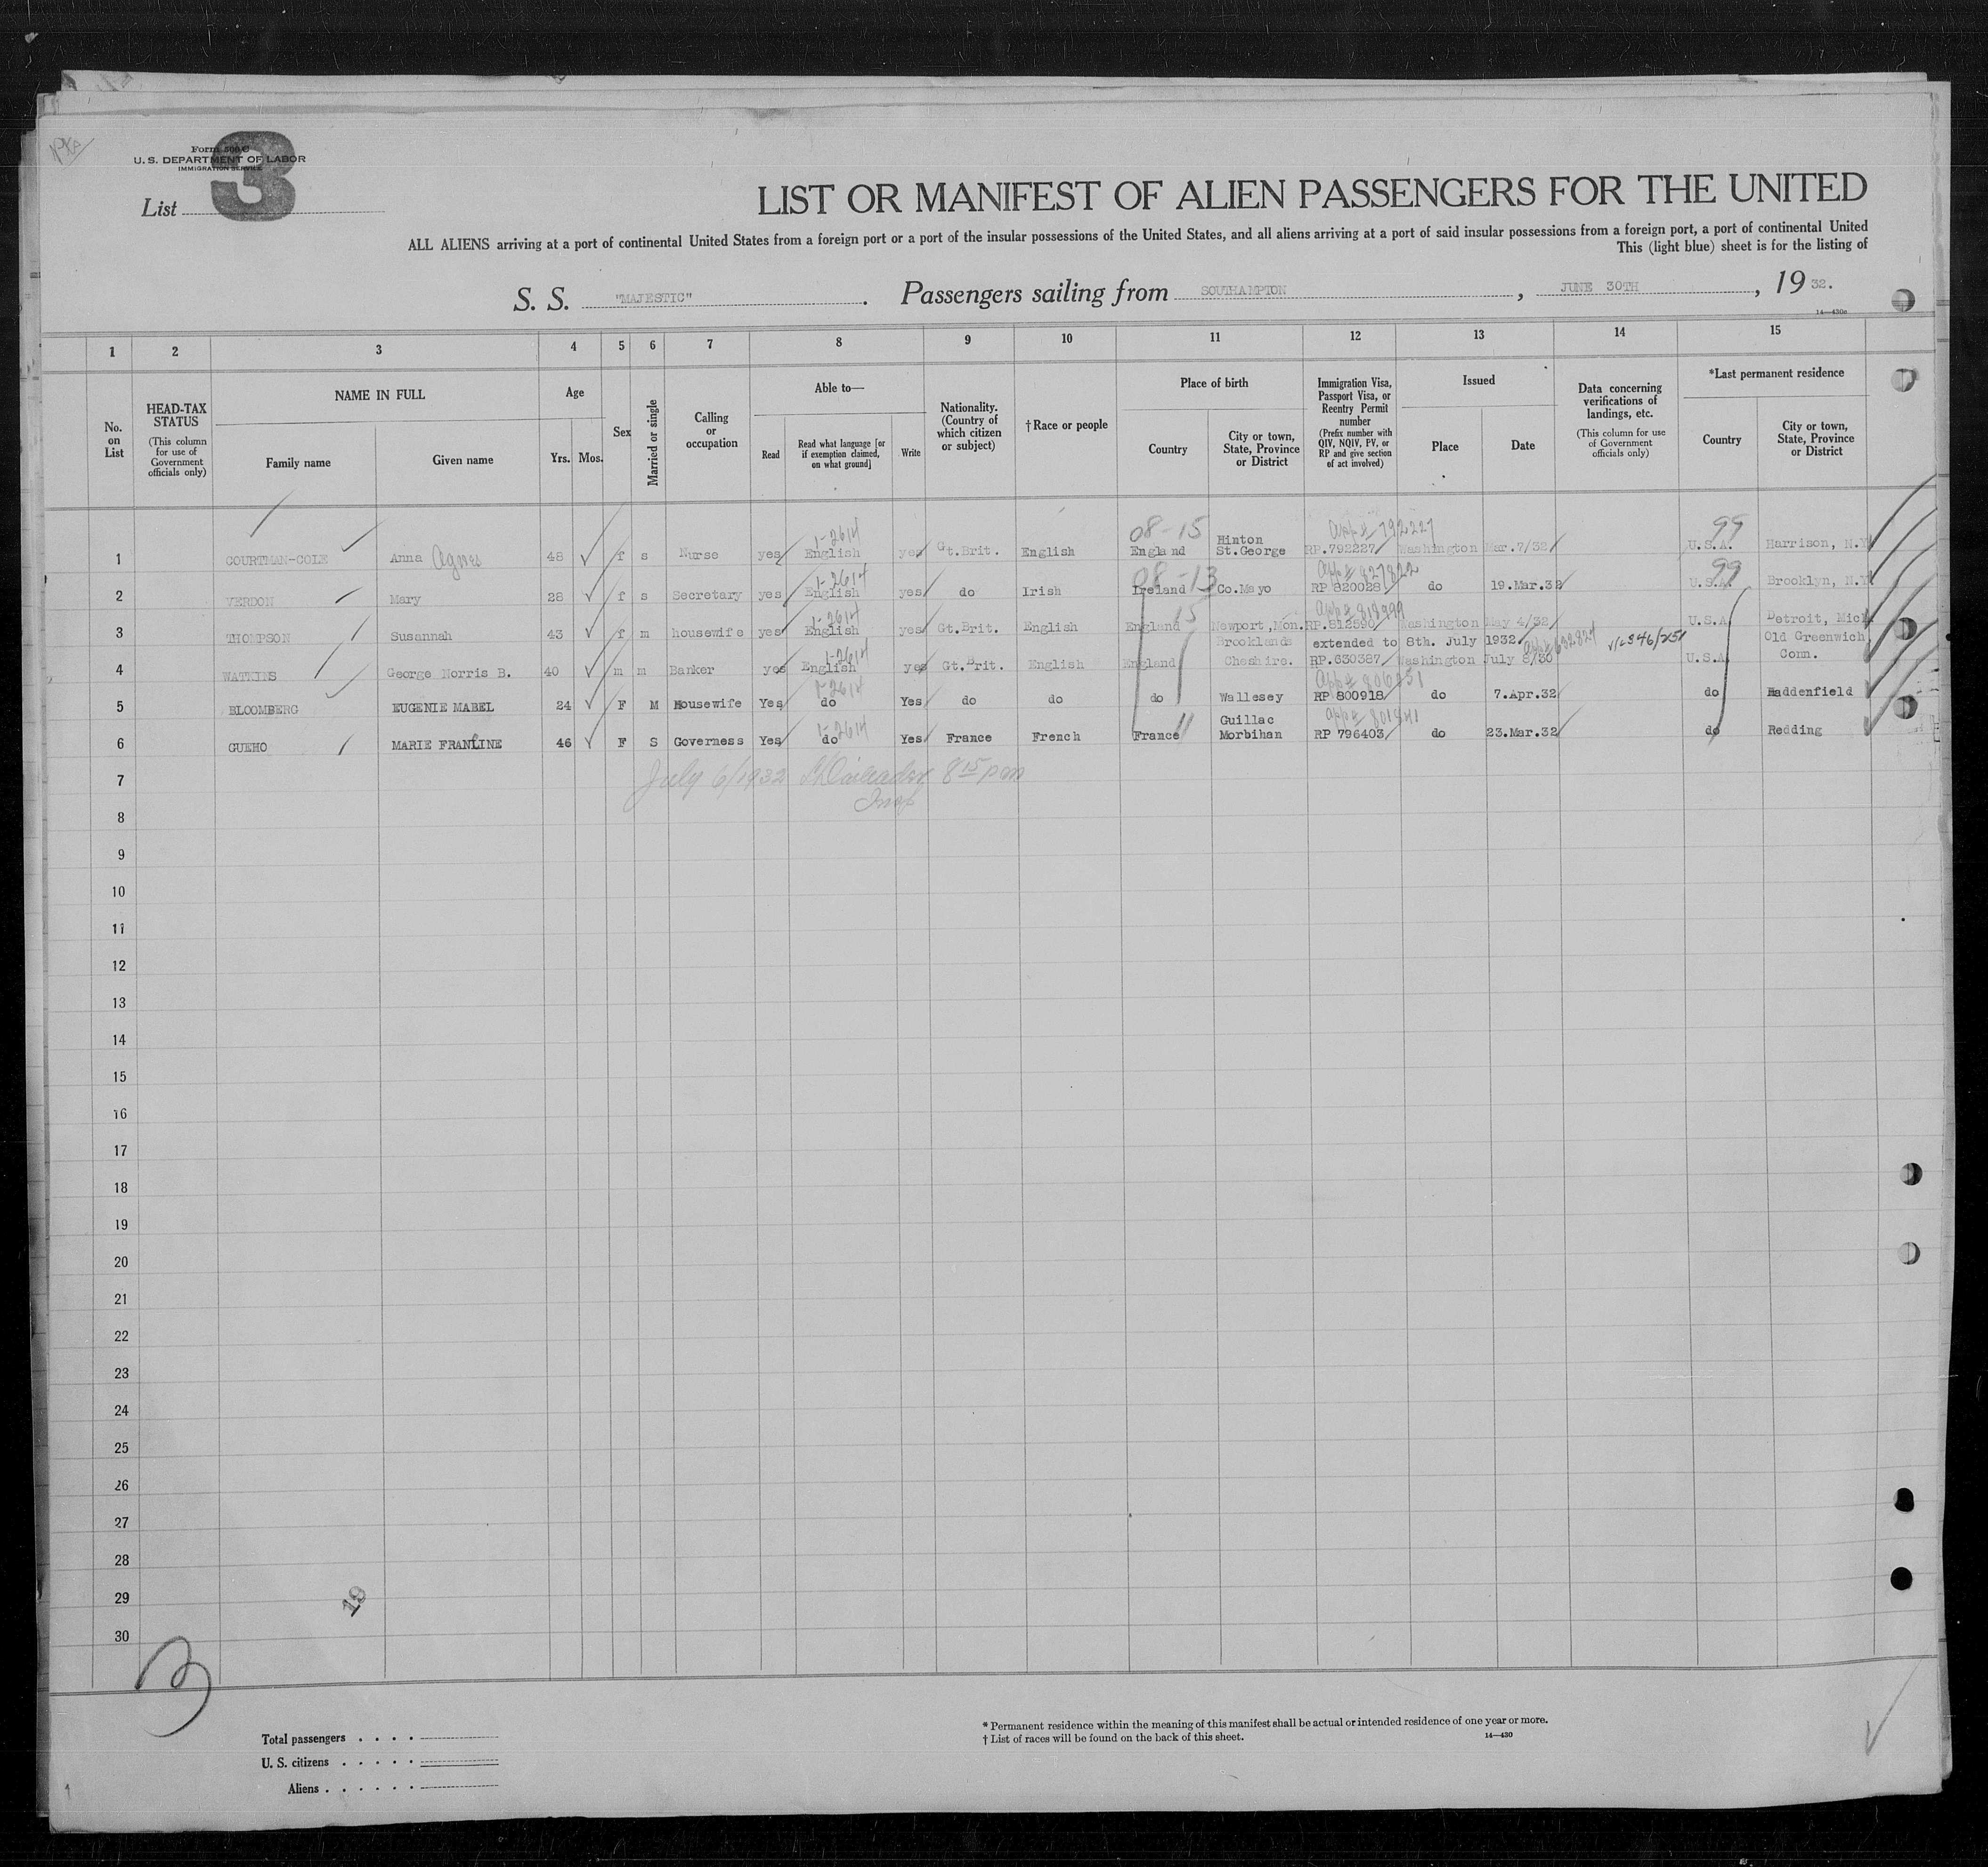 Form 500 C
U. S. DEPARTMENT OF LABOR
IMMIGRATION SERVICE
List 3
LIST OR MANIFEST OF ALIEN PASSENGERS FOR THE UNITED
ALL ALIENS arriving at a port of continental United States from a foreign port or a port of the insular possessions of the United States, and all aliens arriving at a port of said insular possessions from a foreign port, a port of continental United
This (light blue) sheet is for the listing of
S. S. "MAJESTIC" . Passengers sailing from SOUTHAMPTON , JUNE 30TH , 19 32.
14—430a
1 2 3 4 5 6 7 8 9 10 11 12 13 14 15
No. on List
HEAD-TAX STATUS (This column for use of Government officials only)
NAME IN FULL Family name Given name
Age Yrs. Mos.
Sex
Married or single
Calling or occupation
Able to— Read Read what language [or if exemption claimed, on what ground] Write
Nationality. (Country of which citizen or subject)
† Race or people
Place of birth Country City or town, State, Province or District
Immigration Visa, Passport Visa, or Reentry Permit number (Prefix number with QIV, NQIV, PV, or RP and give section of act involved)
Issued Place Date
Data concerning verifications of landings, etc. (This column for use of Government officials only)
*Last permanent residence Country City or town, State, Province or District
1-2614 08-15 Hinton app# 792227 99
1 COURTMAN-COLE Anna Agnes 48 f s Nurse yes English yes Gt.Brit. English England St.George RP.792227 Washington Mar.7/32 U.S.A. Harrison, N.Y
1-2614 08-13 app# 827822 99
2 VERDON Mary 28 f s Secretary yes English yes do Irish Ireland Co.Mayo RP 820028 do 19.Mar.32 U.S.A. Brooklyn, N.Y
1-2614 15
3 THOMPSON Susannah 43 f m housewife yes English yes Gt.Brit. English England Newport,Mon. RP.812590 Washington May 4/32 U.S.A. Detroit, Mich
1-2614 Brooklands extended to 8th. July 1932 app# 632824 Old Greenwich
4 WATKINS George Norris B. 40 m m Banker yes English yes Gt.Brit. English England Cheshire. RP.630387 Washington July 8/30 U.S.A. Conn.
1-2614
5 BLOOMBERG EUGENIE MABEL 24 F M Housewife Yes do Yes do do do Wallesey RP 800918 do 7.Apr.32 do Haddenfield
1-2614 11 Guillac app# 801841
6 GUEHO MARIE FRANLINE 46 F S Governess Yes do Yes France French France Morbihan RP 796403 do 23.Mar.32 do Redding
July 6/1932 8 15 pm
Insp
7
8
9
10
11
12
13
14
15
16
17
18
19
20
21
22
23
24
25
26
27
28
29
30
19
3
Total passengers . . . .
U. S. citizens . . . . .
Aliens . . . . . .
* Permanent residence within the meaning of this manifest shall be actual or intended residence of one year or more.
† List of races will be found on the back of this sheet.
14—430